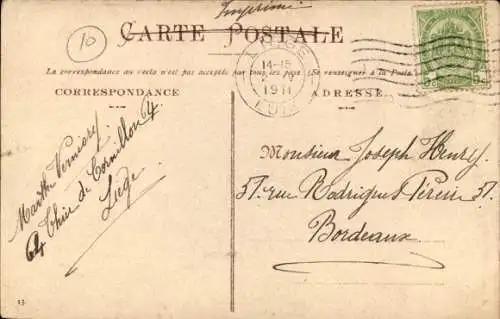 Imprimé
CARTE POSTALE
10
La correspondance au verso n'est pas acceptée par tous les pays. (Se renseigner à la Poste)
CORRESPONDANCE
ADRESSE
LIÉGE
14-15
1911
LUIK
Marthe
64 Thier de Cornillon 64
Liége
Monsieur Joseph Henry
37. rue Rodrigues Péreire 37.
Bordeaux
13